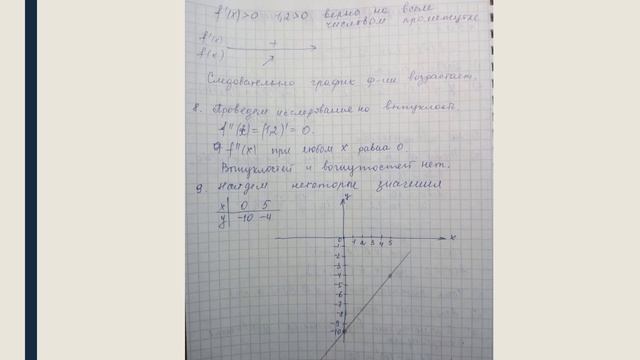 f'(x)>0 1,2>0 верно на всем
числовом промежутке
f'(x) +
f(x)
Следовательно график ф-ии возрастает.
8. Проведем исследование на выпуклость.
f''(x) = (1,2)' = 0.
f''(x) при любом x равна 0.
Выпуклостей и вогнутостей нет.
9. Найдем некоторые значения
x 0 5
y -10 -4
y
0 1 2 3 4 5 x
-1
-2
-3
-4
-5
-6
-7
-8
-9
-10